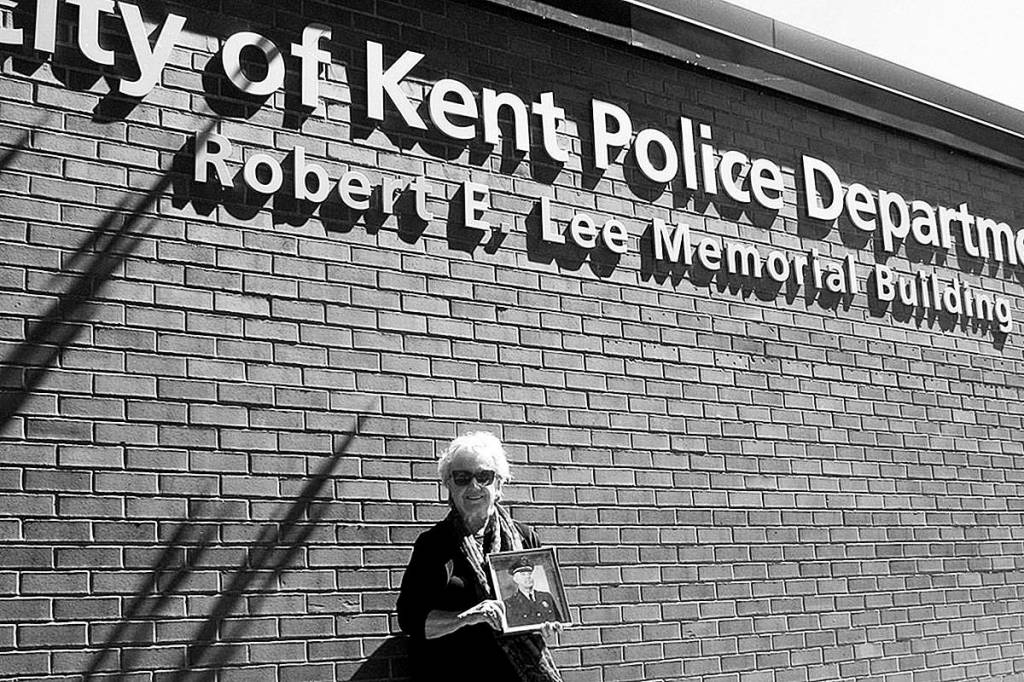 ity of Kent Police Departme
Robert E. Lee Memorial Building